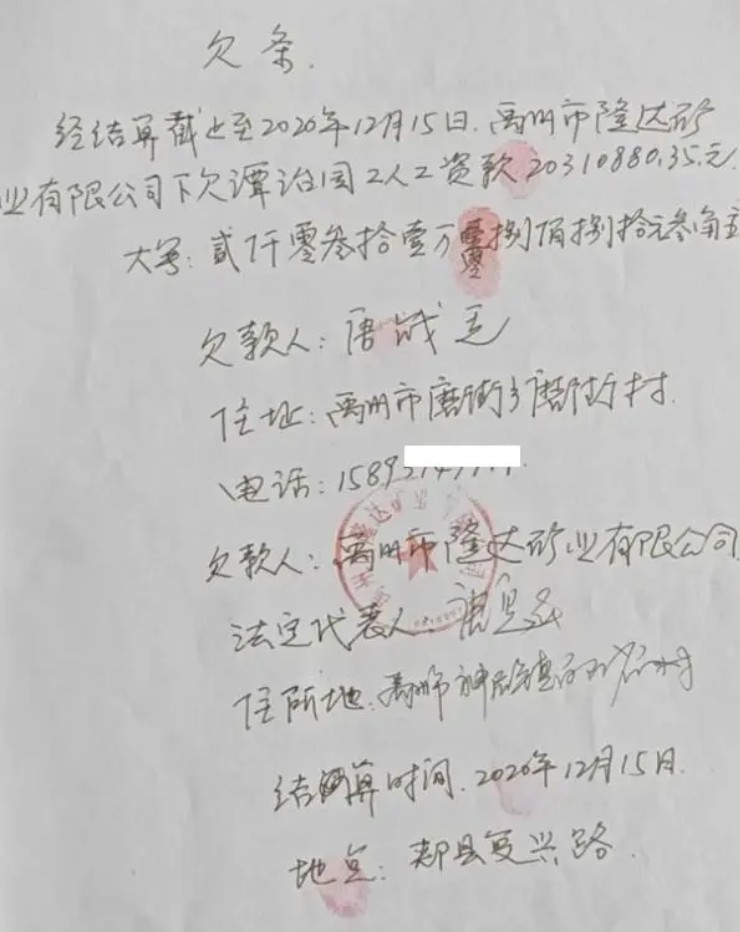 欠条.
经结算截止至2020年12月15日.禹州市隆达矿
业有限公司下欠谭治国工人工资款20310880.35元.
大写:贰仟零叁拾壹万零捌佰捌拾元叁角五
欠款人:唐战
住址:禹州市磨街乡磨街村.
电话:1589
欠款人:禹州市隆达矿业有限公司
法定代表人:唐
住所地:禹州市神垕镇
结算时间.2020年12月15日.
地点:郏县复兴路.